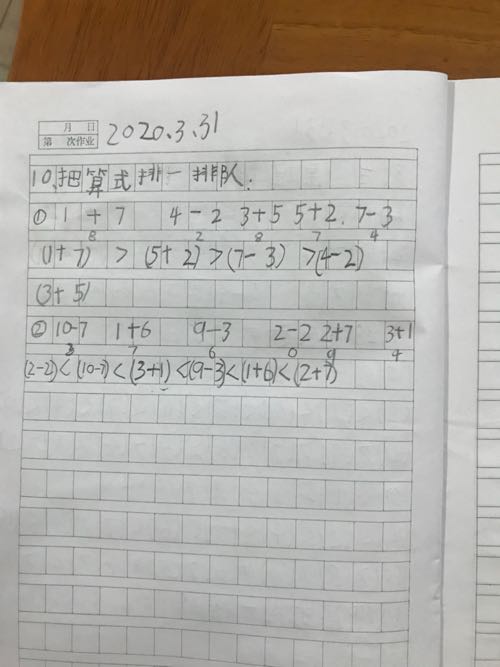 月 日
第 次作业
2020.3.31
10、把算式排一排队:
① 1+7 4-2 3+5 5+2. 7-3
8 2 8 7 4
(1+7) > (5+2) > (7-3) > (4-2)
(3+5)
② 10-7 1+6 9-3 2-2 2+7 3+1
3 7 6 0 9 4
(2-2) < (10-7) < (3+1) < (9-3) < (1+6) < (2+7)